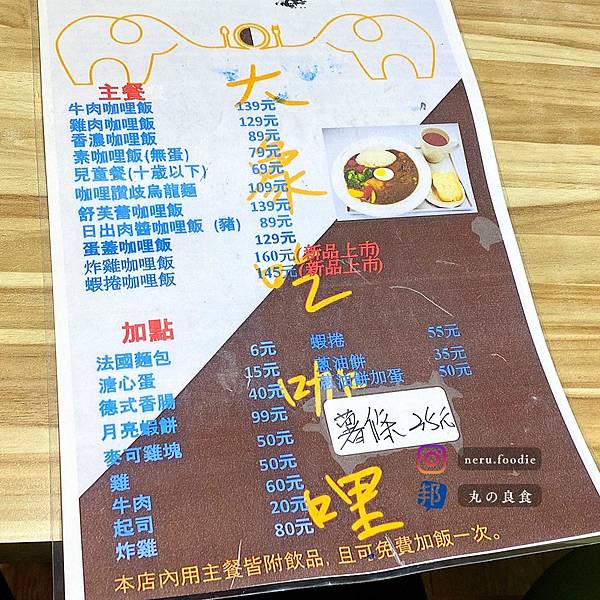 大象吃咖哩
主餐
牛肉咖哩飯 139元
雞肉咖哩飯 129元
香濃咖哩飯 89元
素咖哩飯(無蛋) 79元
兒童餐(十歲以下) 69元
咖哩讚歧烏龍麵 109元
舒芙蕾咖哩飯 139元
日出肉醬咖哩飯 (豬) 89元
蛋蓋咖哩飯 129元
炸雞咖哩飯 160元(新品上市)
蝦捲咖哩飯 145元(新品上市)
加點
法國麵包 6元
溏心蛋 15元
德式香腸 40元
月亮蝦餅 99元
麥可雞塊 50元
雞 50元
牛肉 60元
起司 20元
炸雞 80元
蝦捲 55元
蔥油餅 35元
蔥油餅加蛋 50元
薯條 25元
本店內用主餐皆附飲品，且可免費加飯一次。
neru.foodie
邦 丸の良食